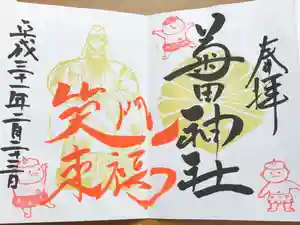 奉拝
菊田神社
笑門来福
平成三十一年二月二十三日